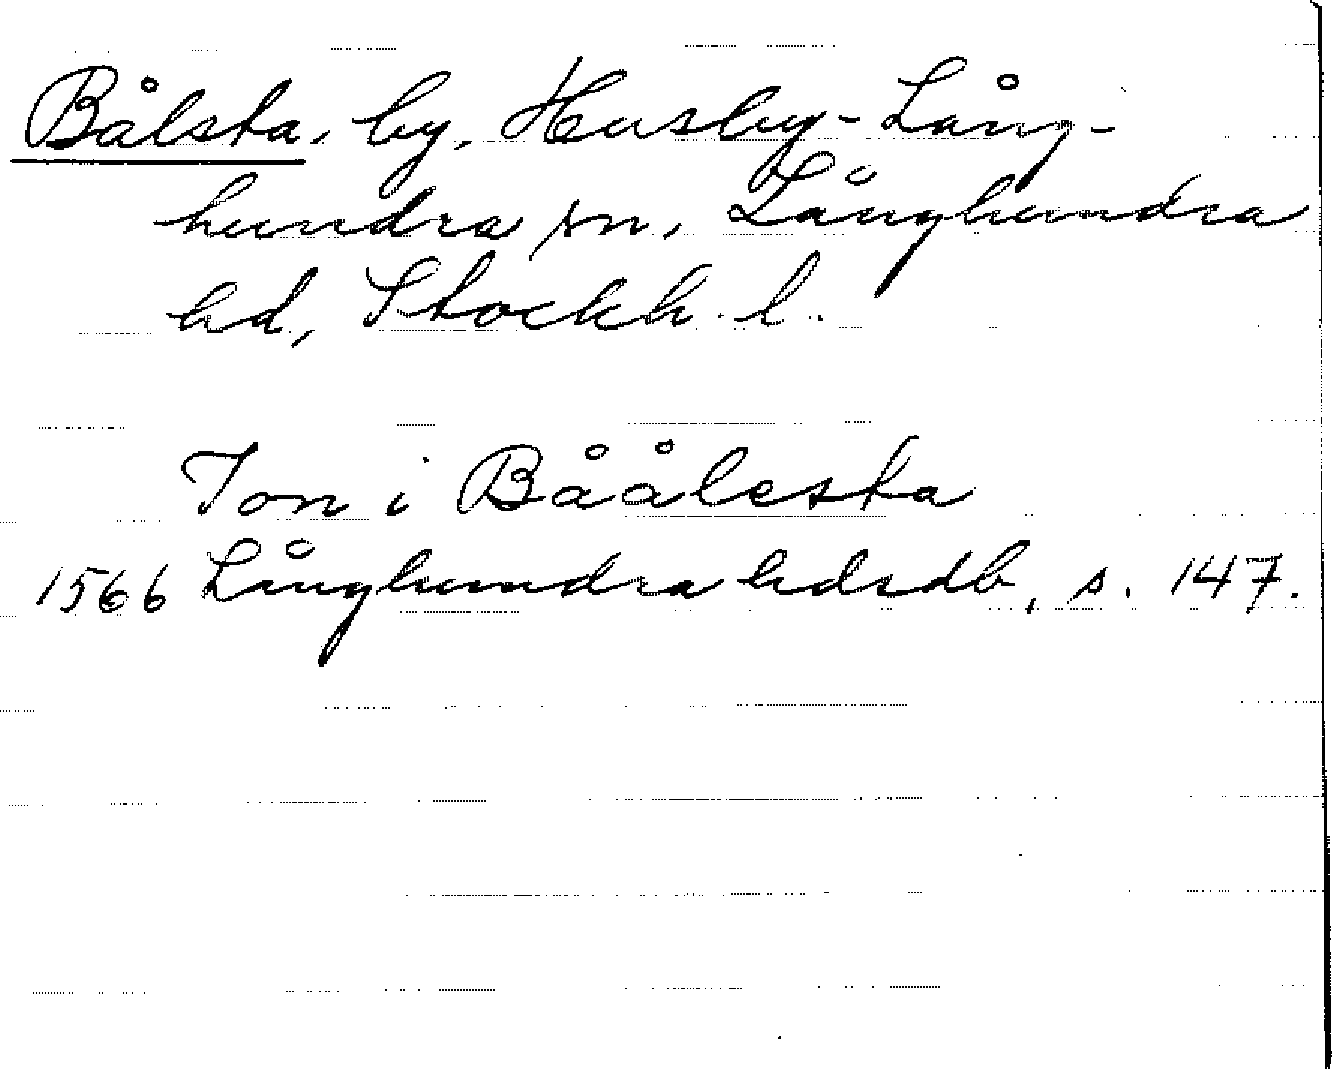 Bålsta, by, Husby-Lång-
hundra sn, Långhundra
hd, Stockh. l.
Jon i Båålesta
1566 Långhundra hdrdb, s. 147.